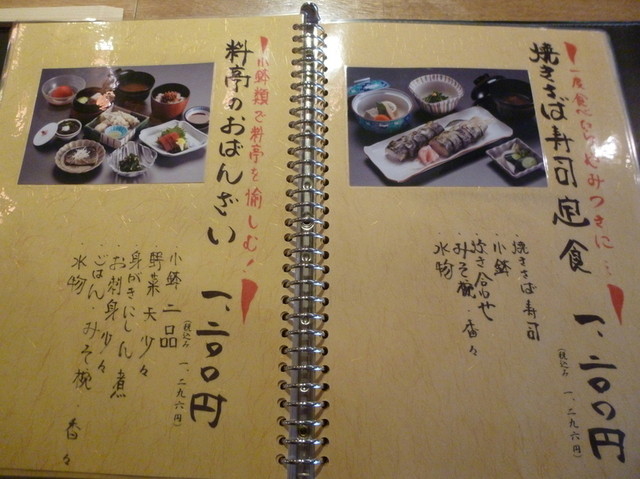 一度食べたらやみつきに…!
焼きさば寿司定食
一、二〇〇円
(税込み 一、二九六円)
・焼きさば寿司
・小鉢
・炊き合わせ
・みそ椀・香々
・水物
小鉢類で料亭を愉しむ!
料亭のおばんざい
一、二〇〇円
(税込み 一、二九六円)
・小鉢 二品
・野菜天少々
・身がきにしん煮
・お刺身少々
・ごはん・みそ椀・香々
・水物